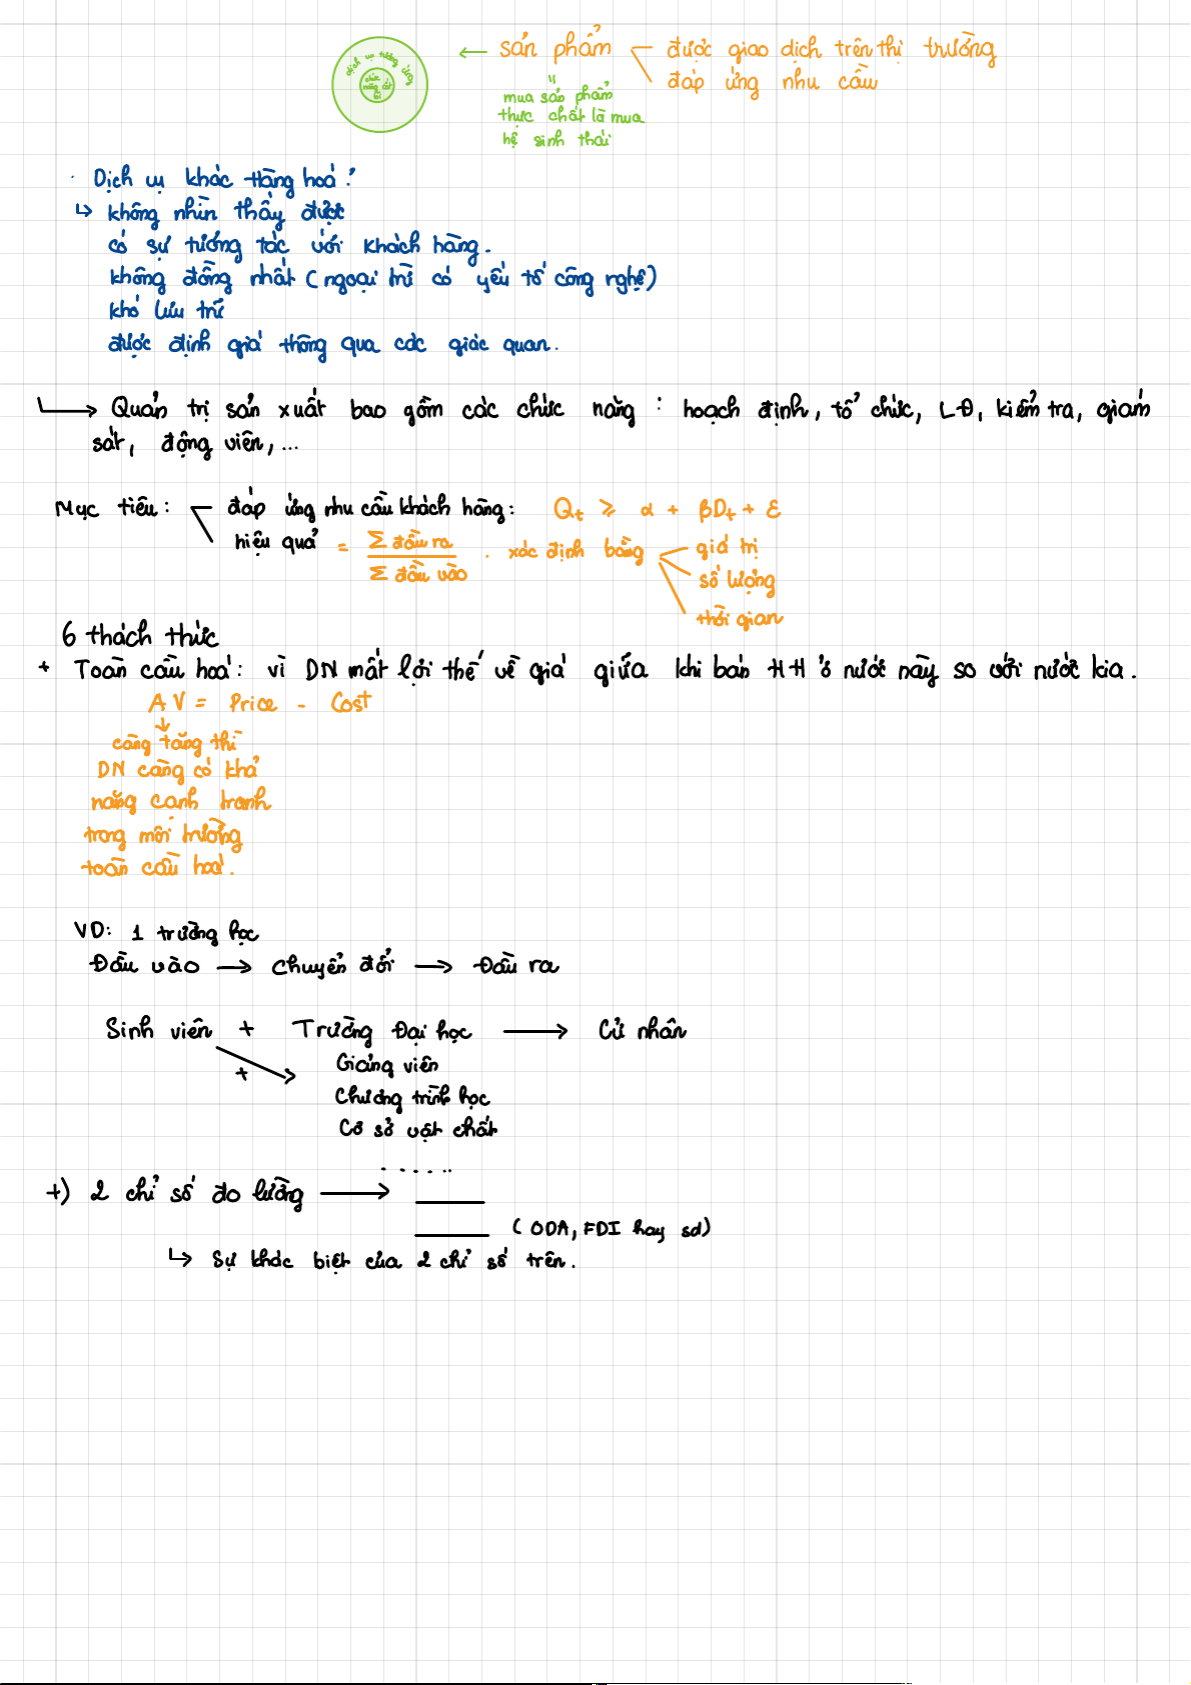 sản phẩm
được giao dịch trên thị trường
đáp ứng nhu cầu
dịch vụ tương ứng
chức năng cốt lõi
mua sản phẩm
thực chất là mua
hệ sinh thái
Dịch vụ khác Hàng hoá?
↳ không nhìn thấy được
có sự tương tác với khách hàng.
không đồng nhất (ngoại trừ có yếu tố công nghệ)
khó lưu trữ
được định giá thông qua các giác quan.
Quản trị sản xuất bao gồm các chức năng : hoạch định, tổ chức, LĐ, kiểm tra, giám
sát, động viên, ...
Mục tiêu: đáp ứng nhu cầu khách hàng: Qt ≥ α + βDt + ε
hiệu quả = Σ đầu ra / Σ đầu vào . xác định bằng giá trị
số lượng
thời gian
6 thách thức
+ Toàn cầu hoá: vì DN mất lợi thế về giá giữa khi bán HH ở nước này so với nước kia.
AV = Price - Cost
càng tăng thì
DN càng có khả
năng cạnh tranh
trong môi trường
toàn cầu hoá.
VD: 1 trường học
Đầu vào → Chuyển đổi → Đầu ra
Sinh viên + Trường Đại học → Cử nhân
+ Giảng viên
Chương trình học
Cơ sở vật chất
......
+) 2 chỉ số đo lường →
(ODA, FDI hay sd)
↳ Sự khác biệt của 2 chỉ số trên.